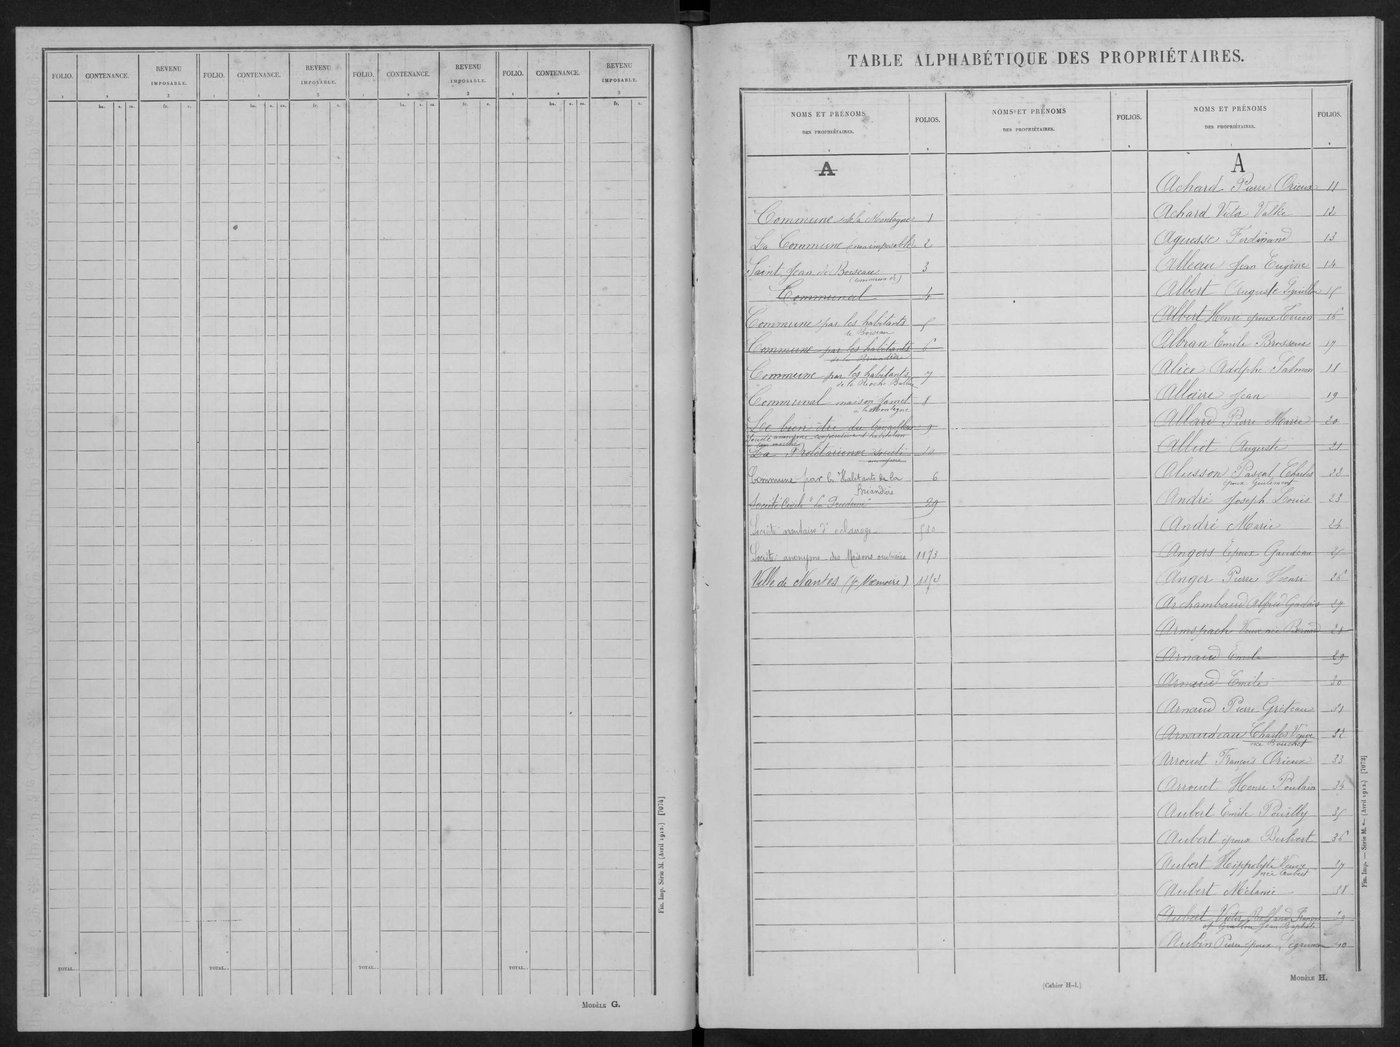 FOLIO. CONTENANCE. REVENU IMPOSABLE. FOLIO. CONTENANCE. REVENU IMPOSABLE. FOLIO. CONTENANCE. REVENU IMPOSABLE. FOLIO. CONTENANCE. REVENU IMPOSABLE.
1 2 3 1 2 3 1 2 3 1 2 3
ha. a. ca. fr. c. ha. a. ca. fr. c. ha. a. ca. fr. c. ha. a. ca. fr. c.
TOTAL. TOTAL. TOTAL. TOTAL.
Fin. Imp. Série M. (Avril 1912.) [7074]
MODÈLE G.
TABLE ALPHABÉTIQUE DES PROPRIÉTAIRES.
NOMS ET PRÉNOMS DES PROPRIÉTAIRES. FOLIOS.
A
Commune de la Montagne 1
La Commune 2
Saint Jean de Boiseau 3
(commune de)
Communal 4
Commune par les habitants 5
de Boiseau
Commune par les habitants 6
de la Briandière
Commune par les habitants 7
de la Roche Ballue
Communal maison Jamet 8
à la Montagne
Le bien être du 9
Société anonyme coopérative d'habitation
à bon marché
La Prolétarienne société
anonyme
Commune par les Habitants de la 6
Briandière
Société Civile "La 29
Société nantaise d'éclairage 520
Société anonyme des Maisons ouvrières 1173
Ville de Nantes (p. Mémoire) 1174
NOMS ET PRÉNOMS DES PROPRIÉTAIRES. FOLIOS.
NOMS ET PRÉNOMS DES PROPRIÉTAIRES. FOLIOS.
A
Achard Pierre Orieux 11
Achard Victor Vallée 12
Aguesse Ferdinand 13
Albeau Jean Eugène 14
Albert Auguste 15
Albert Henri époux 16
Albran Emile Brosseau 17
Alice Adolphe Salmon 18
Allaire Jean 19
Allard Pierre Marie 20
Alliot Auguste 21
Alusson Pascal Charles 22
époux
André Joseph Louis 23
André Marie 24
Angers Epoux Gaudeau 25
Anger Pierre Henri 26
Archambaud Alfred 27
Armspach Veuve née 28
Arnaud Emile 29
Arnaud Emile 30
Arnaud Pierre Gréteau 31
Arnaudeau Charles Veuve 32
née Bouchet
Arrouet François Orieux 33
Arrouet Henri Poulain 34
Aubert Emile Pouilly 35
Aubert époux Berthert 36
Aubert Hippolyte Veuve 37
née Lambert
Aubert Mélanie 38
Aubert Victor François 39
et Jean Baptiste
Aubin Pierre époux 40
Fin. Imp. — Série M. — (Avril 1912.) [7073]
(Cahier H-1.)
MODÈLE H.